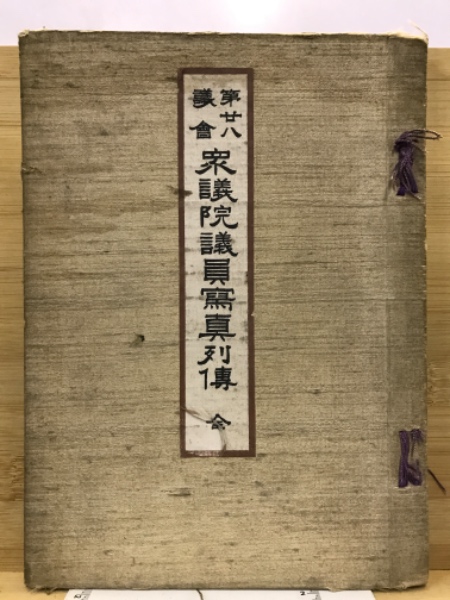 第廿八
議會
衆議院議員寫眞列傳 全